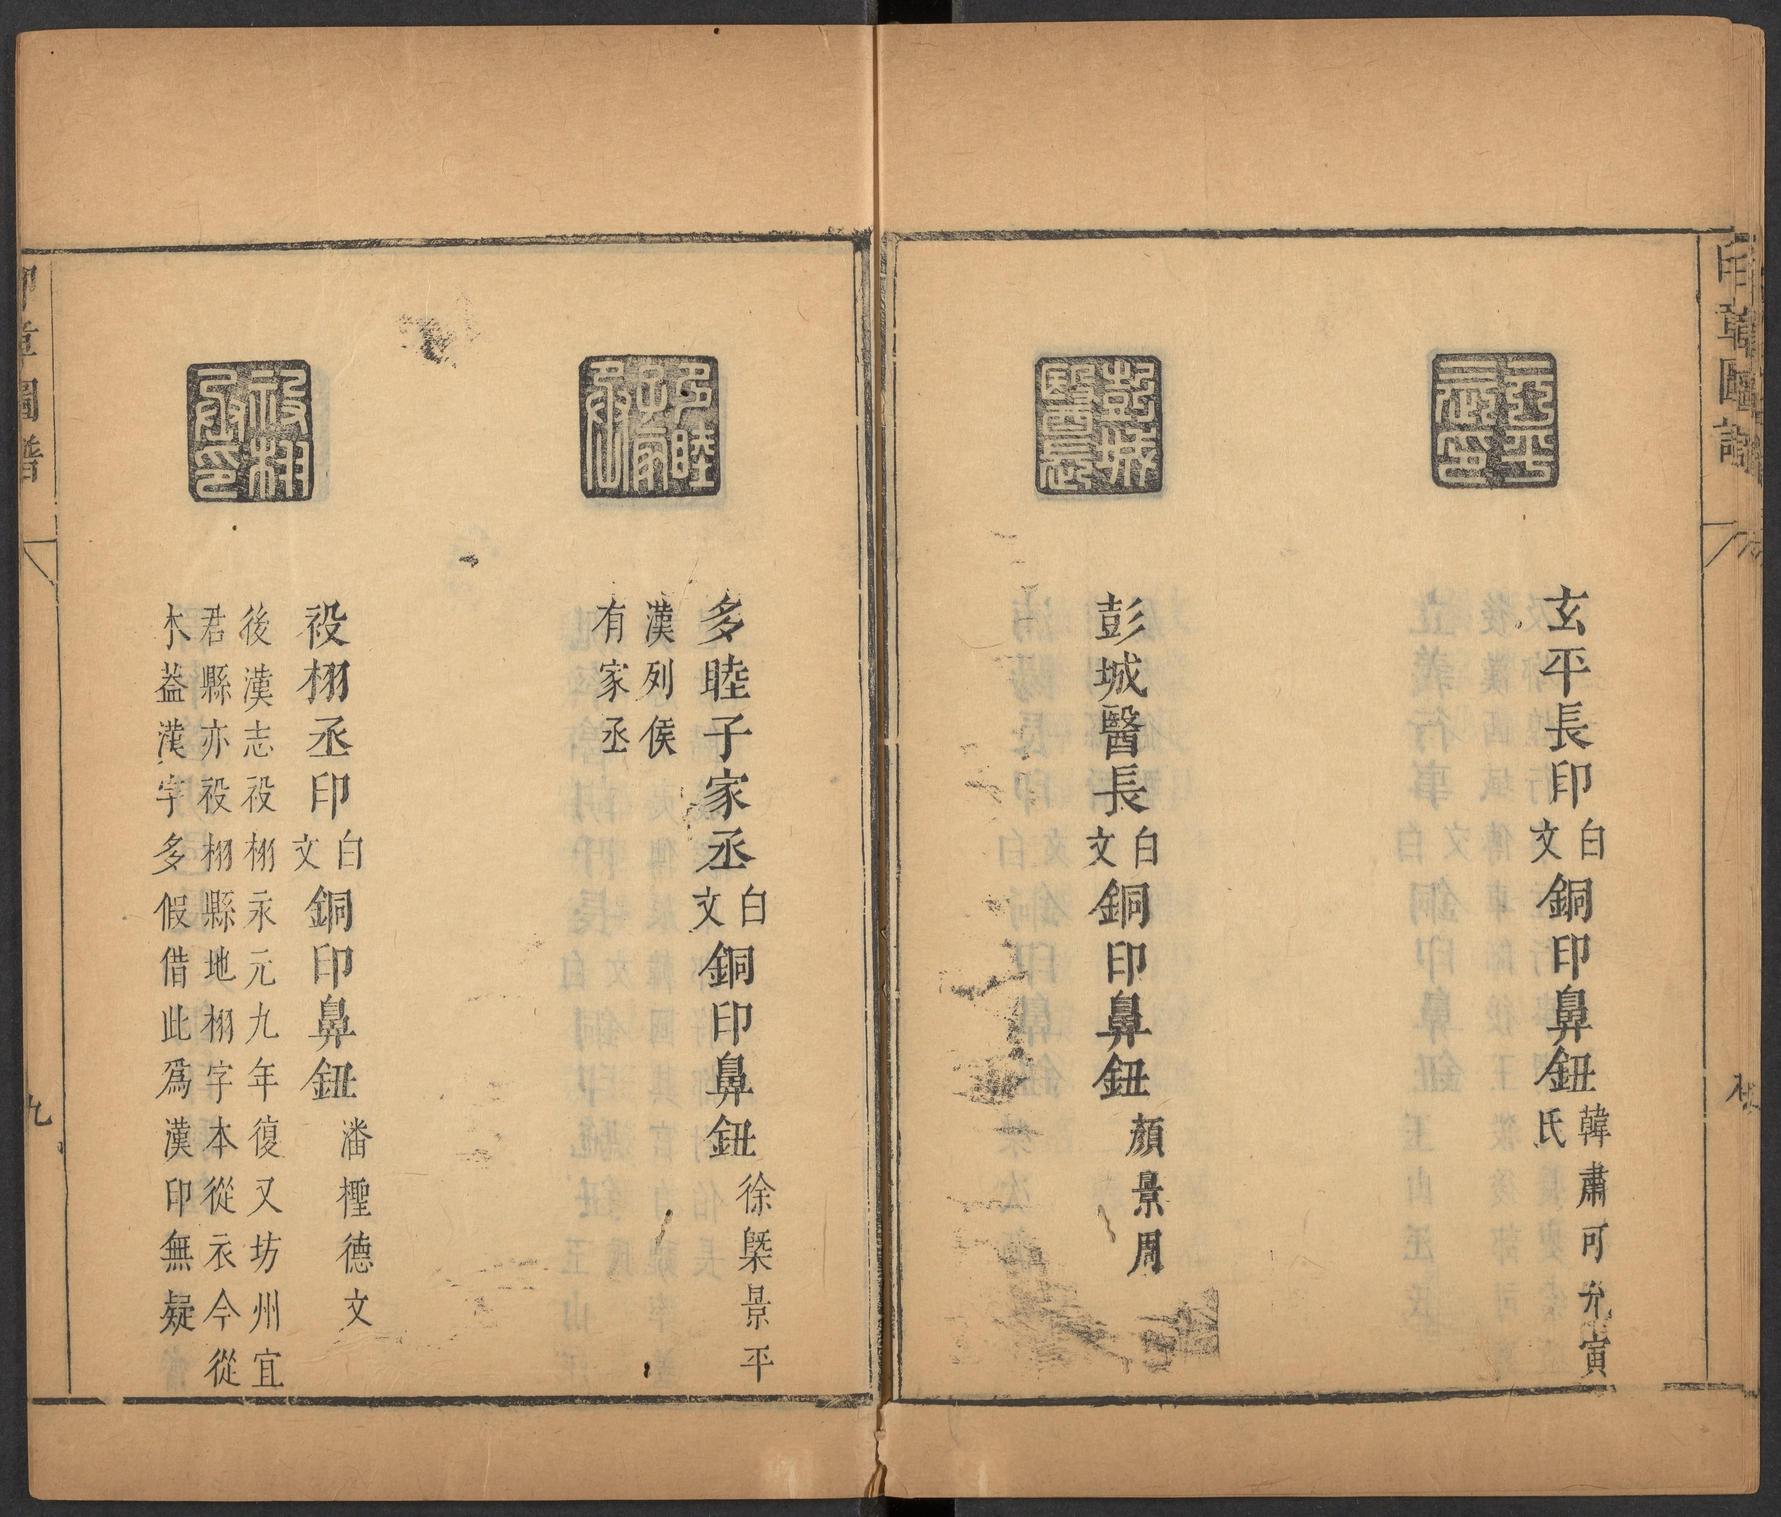 玄平長印白文銅印鼻鈕韓肅可允寅氏
彭城醫長白文銅印鼻鈕顏景周
多睦子家丞白文銅印鼻鈕徐槩景平
漢列侯
有家丞
祋栩丞印白文銅印鼻鈕潘檉德文
後漢志祋栩永元九年復又坊州宜
君縣亦祋栩縣地栩字本從衣今從
木葢漢字多假借此爲漢印無疑
九